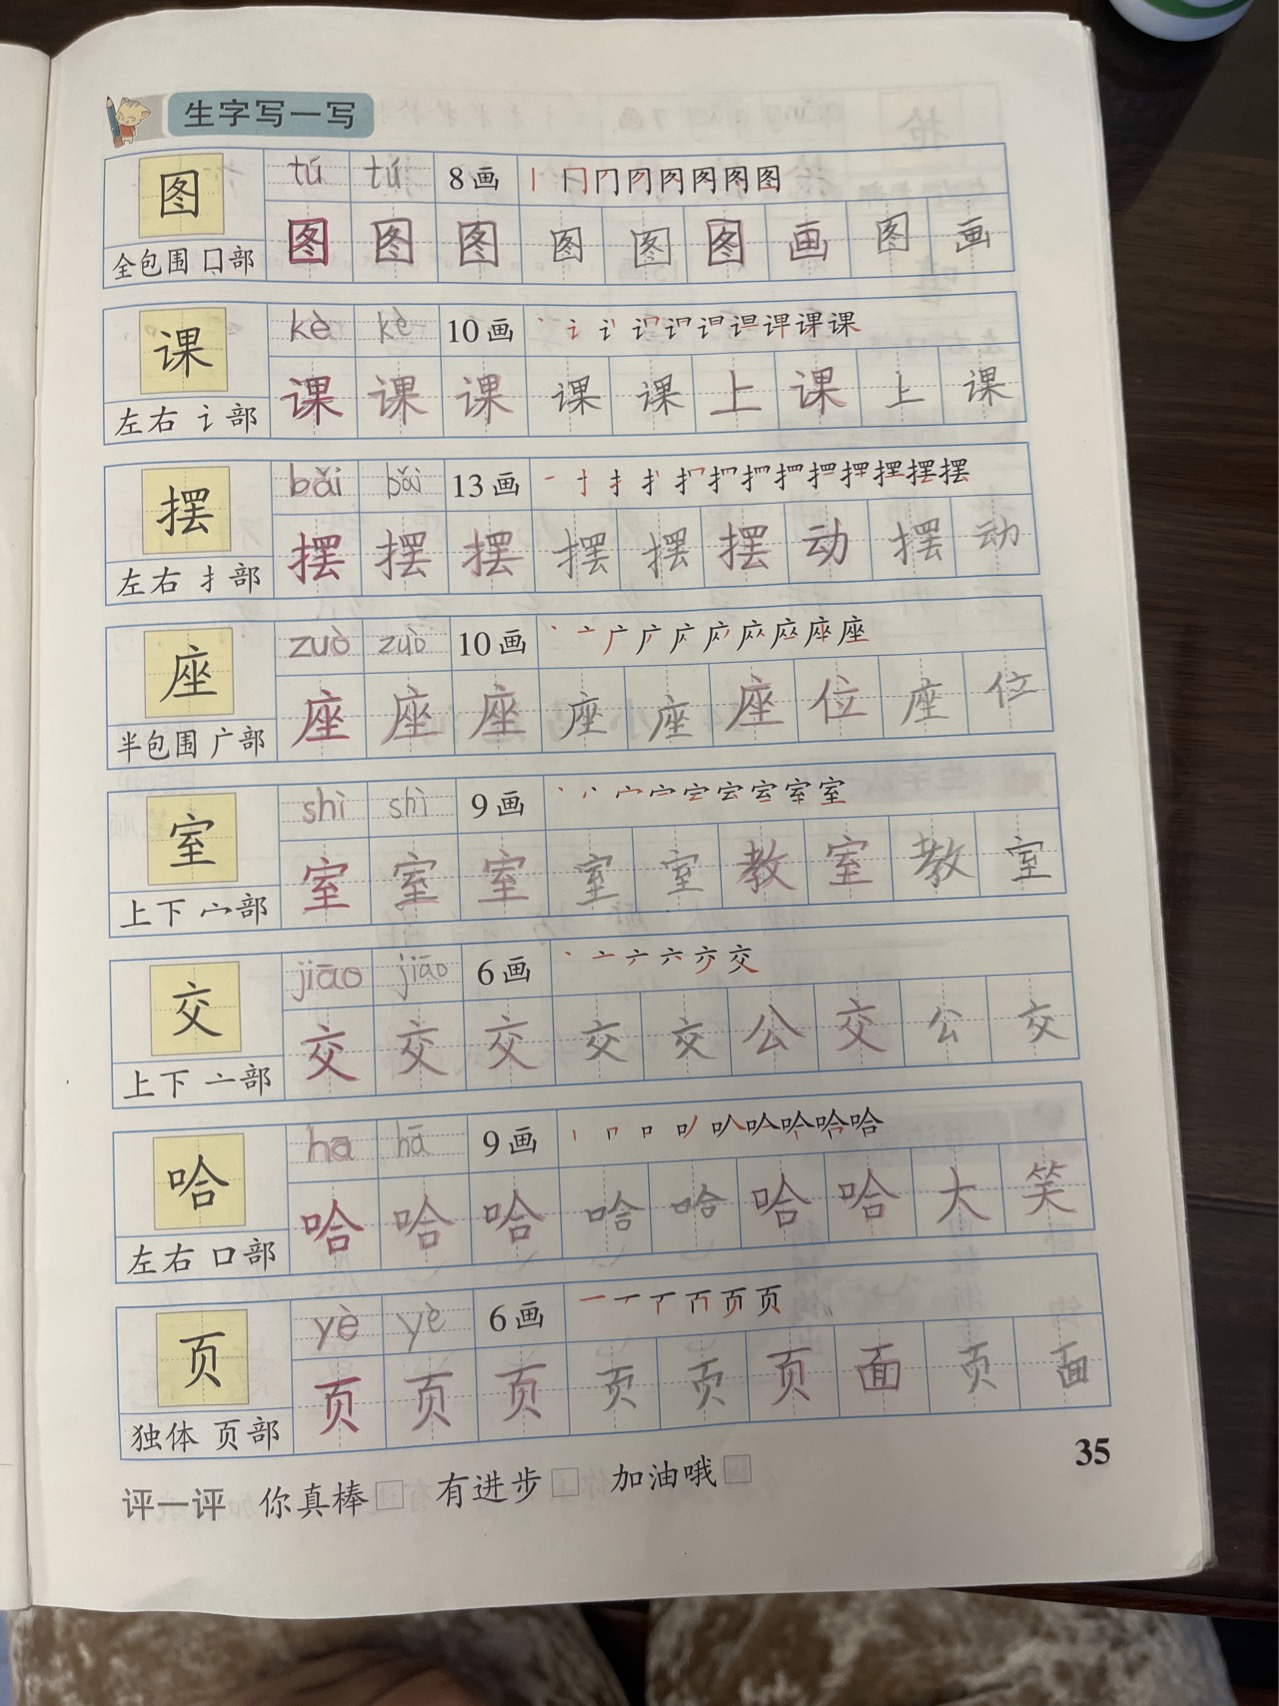 生字写一写
图 tú tú 8画 丨 冂 冂 冈 冈 图 图 图
全包围 囗部 图 图 图 图 图 图 画 图 画
课 kè kè 10画 课 课
左右 讠部 课 课 课 课 课 上 课 上 课
摆 bǎi bǎi 13画 一 扌 扌 摆 摆
左右 扌部 摆 摆 摆 摆 摆 摆 动 摆 动
座 zuò zuò 10画 丶 亠 广 座 座
半包围 广部 座 座 座 座 座 座 位 座 位
室 shì shì 9画 丶 宀 室 室
上下 宀部 室 室 室 室 室 教 室 教 室
交 jiāo jiāo 6画 丶 亠 六 交
上下 亠部 交 交 交 交 交 公 交 公 交
哈 hā hā 9画 丨 口 哈 哈
左右 口部 哈 哈 哈 哈 哈 哈 哈 大 笑
页 yè yè 6画 一 页 页
独体 页部 页 页 页 页 页 页 面 页 面
35
评一评 你真棒 有进步 加油哦